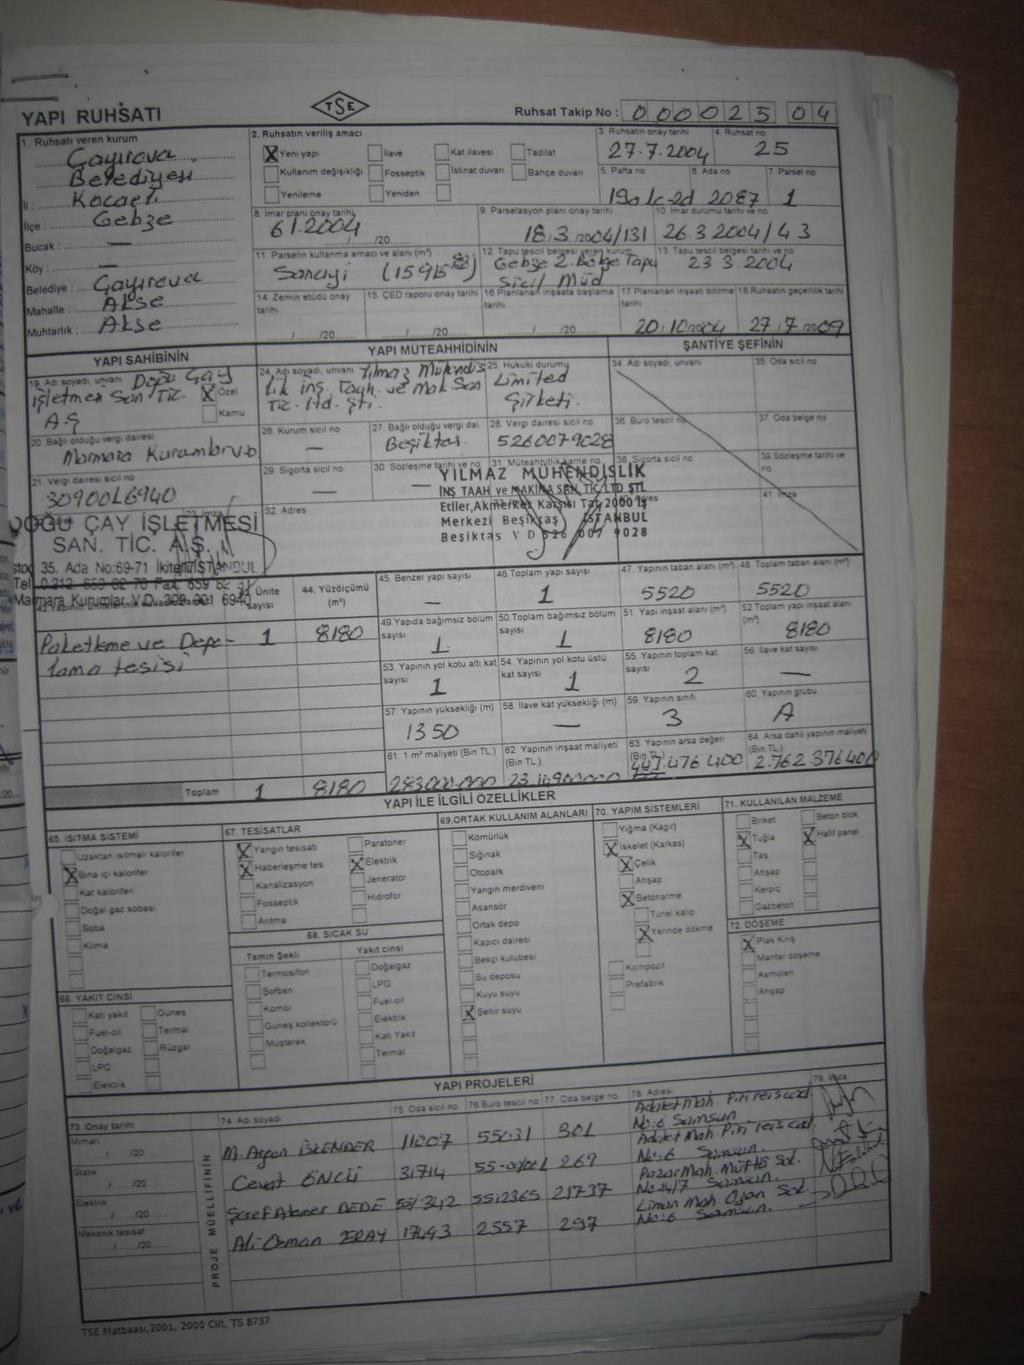 YAPI RUHSATI
TSE
Ruhsat Takip No : 000025 04
1. Ruhsatı veren kurum
Çayırova
Belediyesi
İl : Kocaeli
İlçe : Gebze
Bucak : —
Köy : —
Belediye : Çayırova
Mahalle : Akse
Muhtarlık : Akse
2. Ruhsatın veriliş amacı
X Yeni yapı
İlave
Kat ilavesi
Tadilat
Kullanım değişikliği
Fosseptik
İstinat duvarı
Bahçe duvarı
Yenileme
Yeniden
3. Ruhsatın onay tarihi
27.7.2004
4. Ruhsat no
25
5. Pafta no
6. Ada no
2087
7. Parsel no
1
8. İmar planı onay tarihi
6.1.2004
9. Parselasyon planı onay tarihi
18.3.2004/131
10. İmar durumu tarihi ve no
26.3.2004/43
11. Parselin kullanma amacı ve alanı (m²)
Sanayi
12. Tapu tescil belgesi veren kurum
Gebze 2. Bölge Tapu
Sicil Müd
13. Tapu tescil belgesi tarihi ve no
23 3.2004
14. Zemin etüdü onay tarihi
15. ÇED raporu onay tarihi
16 Planlanan inşaata başlama tarihi
17 Planlanan inşaatı bitirme tarihi
20/10/2004
18 Ruhsatın geçerlilik tarihi
27.7.2009
YAPI SAHİBİNİN
19. Adı soyadı, unvanı Doğu Çay
İşletmesi San Tic.
A.Ş
X Özel
Kamu
20. Bağlı olduğu vergi dairesi
Marmara Kurumlar V.D
21. Vergi dairesi sicil no
3090016940
DOĞU ÇAY İŞLETMESİ
SAN. TİC. A.Ş.
35. Ada No:69-71 İkitelli/İSTANBUL
Marmara Kurumlar V.D. 309 001 6940
YAPI MÜTEAHHİDİNİN
24. Adı soyadı, unvanı Yılmaz Mühendis
lik inş. Taah. ve Mak San
Tic. ltd. şti.
25. Hukuki durumu
Limited
Şirketi.
26. Kurum sicil no
—
27. Bağlı olduğu vergi dai.
Beşiktaş.
28. Vergi dairesi sicil no
5260079028
29. Sigorta sicil no
—
30. Sözleşme tarihi ve no
—
31. Müteahhitlik karne no
32. Adres
YILMAZ MÜHENDİSLİK
İNŞ TAAH ve MAKİNA SAN. TİC. LTD ŞTİ.
Etiler, Akmerkez Karşısı Tay 2000 İş
Merkezi Beşiktaş İSTANBUL
Beşiktaş V D 526 007 9028
ŞANTİYE ŞEFİNİN
34. Adı soyadı, unvanı
35. Oda sicil no
36. Büro tescil no
37. Oda belge no
38. Sigorta sicil no
39 Sözleşme tarihi ve no
41. İmza
Ünite sayısı
44. Yüzölçümü (m²)
Paketleme ve Depo-
lama tesisi
1
8180
Toplam 1 8180
45. Benzer yapı sayısı
—
46. Toplam yapı sayısı
1
47. Yapının taban alanı (m²)
5520
48. Toplam taban alanı (m²)
5520
49. Yapıda bağımsız bölüm sayısı
1
50. Toplam bağımsız bölüm sayısı
1
51. Yapı inşaat alanı (m²)
8180
52 Toplam yapı inşaat alanı (m²)
8180
53. Yapının yol kotu altı kat sayısı
1
54. Yapının yol kotu üstü kat sayısı
1
55. Yapının toplam kat sayısı
2
56. İlave kat sayısı
—
57. Yapının yüksekliği (m)
1350
58. İlave kat yüksekliği (m)
—
59. Yapının sınıfı
3
60. Yapının grubu
A
61. 1 m² maliyeti (Bin TL.)
62. Yapının inşaat maliyeti (Bin TL.)
63. Yapının arsa değeri (Bin TL.)
447.476 400
64. Arsa dahil yapının maliyeti (Bin TL.)
2.762.376 400
YAPI İLE İLGİLİ ÖZELLİKLER
65. ISITMA SİSTEMİ
Uzaktan ısıtmalı kalorifer
X Bina içi kalorifer
Kat kaloriferi
Doğal gaz sobası
Soba
Klima
66. YAKIT CİNSİ
Katı yakıt
Güneş
Fuel-oil
Termal
Doğalgaz
Rüzgar
LPG
Elektrik
67. TESİSATLAR
X Yangın tesisatı
Paratoner
X Haberleşme tes
X Elektrik
Kanalizasyon
Jeneratör
Fosseptik
Hidrofor
Arıtma
68. SICAK SU
Temin Şekli
Yakıt cinsi
Termosifon
Doğalgaz
Şofben
LPG
Kombi
Fuel-oil
Güneş kollektörü
Elektrik
Müşterek
Katı Yakıt
Termal
69.ORTAK KULLANIM ALANLARI
Kömürlük
Sığınak
Otopark
Yangın merdiveni
Asansör
Ortak depo
Kapıcı dairesi
Bekçi kulübesi
Su deposu
Kuyu suyu
X Şehir suyu
70. YAPIM SİSTEMLERİ
Yığma (Kagir)
X İskelet (Karkas)
X Çelik
Ahşap
X Betonarme
Tünel kalıp
X Yerinde dökme
Kompozit
Prefabrik
71. KULLANILAN MALZEME
Briket
Beton blok
X Tuğla
X Hafif panel
Taş
Ahşap
Kerpiç
Gazbeton
72. DÖŞEME
X Plak Kiriş
Mantar döşeme
Asmolen
Ahşap
YAPI PROJELERİ
73. Onay tarihi
74. Adı soyadı
75 Oda sicil no
76 Büro tescil no
77. Oda belge no
78. Adresi
79. İmza
PROJE MÜELLİFİNİN
Mimari
İSLENDER 11007 55031 301
No:6 Samsun
Statik
Cevat ÖNCÜ 31714 269
No:6 Samsun.
Elektrik
DEDE 5512365 21737
Mekanik tesisat
Ali Osman ERAY 17443 2557 297
No:6 Samsun.
TSE Matbaası,2001, 2000 Cilt, TS 8737